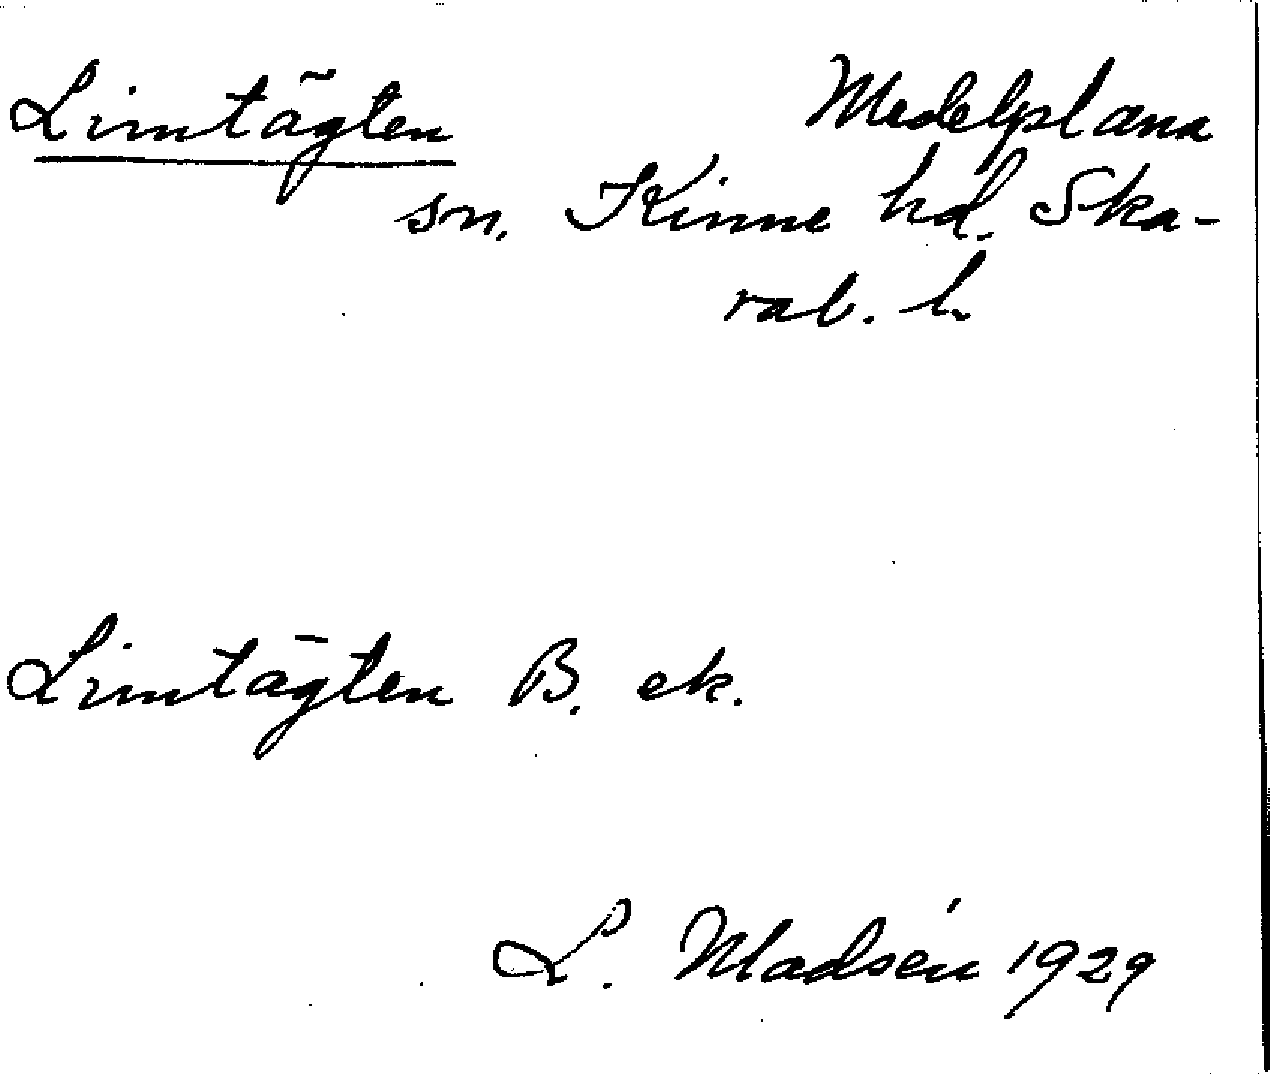 Limtägten Medelplana
sn. Kinne hd. Ska-
rab. l.
Limtägten B. ek.
L. Madsén 1929